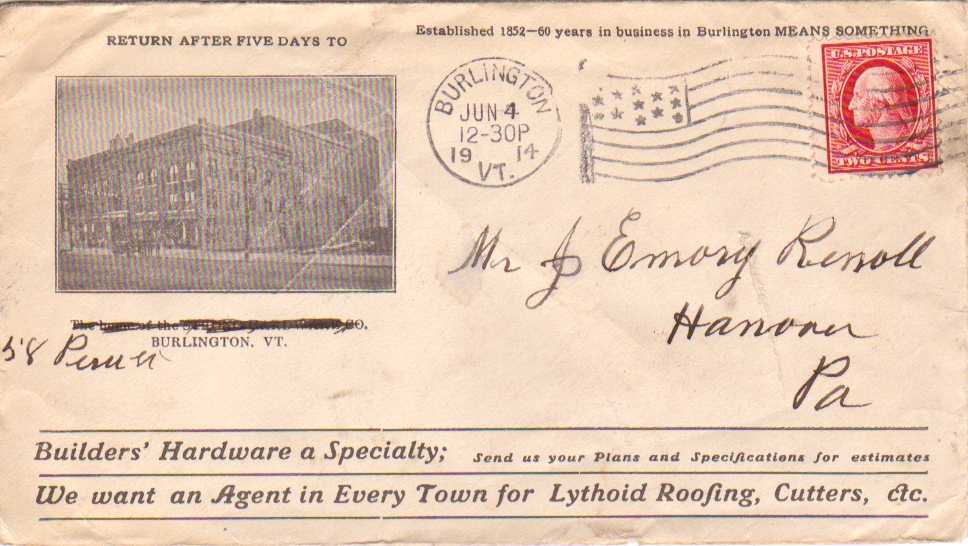 RETURN AFTER FIVE DAYS TO
Established 1852—60 years in business in Burlington MEANS SOMETHING
BURLINGTON
JUN 4
12-30P
19 14
VT.
U.S. POSTAGE
TWO CENTS
Mr J Emory Renoll
Hanover
Pa
The home of the HARDWARE CO.
BURLINGTON, VT.
58
Builders' Hardware a Specialty; Send us your Plans and Specifications for estimates
We want an Agent in Every Town for Lythoid Roofing, Cutters, &c.